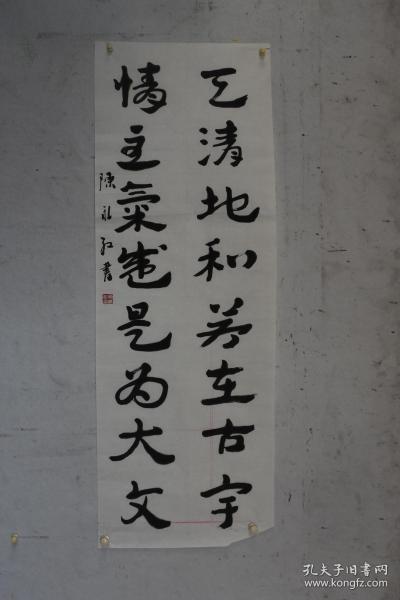 天清地和若在古宇
情主氣盛是为大文
陳
書
孔夫子旧书网
www.kongfz.com